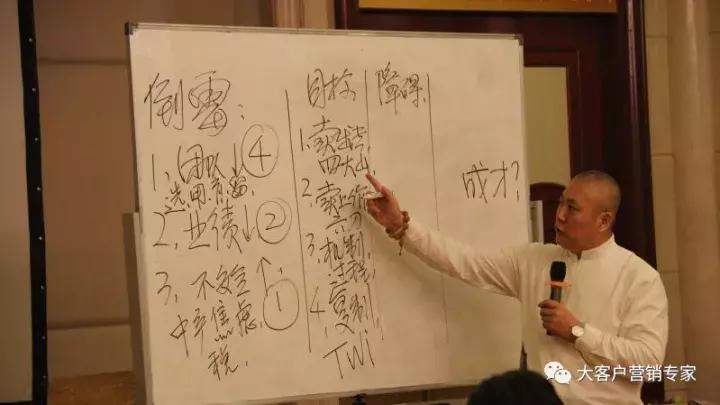 倒雷：
1、团队↓④
选用育留
2、业绩↓②
3、不安定↑①
中年焦虑
税
目标
1、
四大山
2、
3、机制
过程
4、复制
TWi
障碍
成才？
大客户营销专家